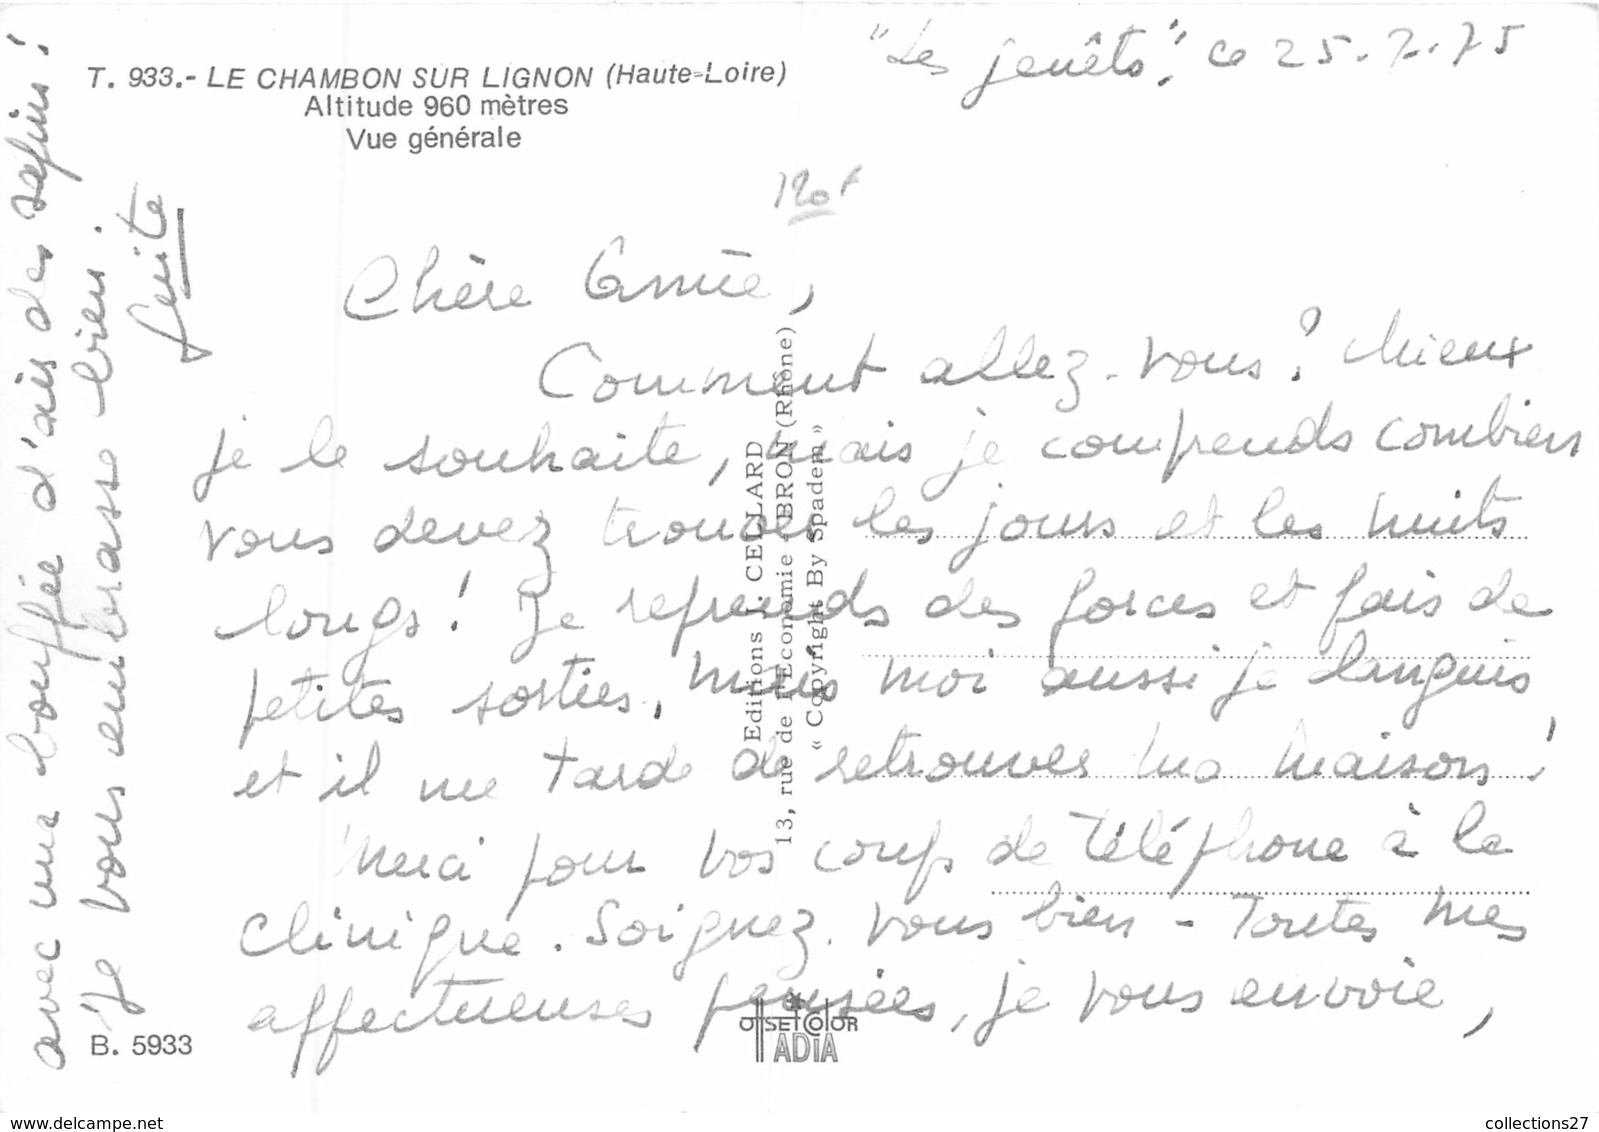 T. 933.- LE CHAMBON SUR LIGNON (Haute-Loire)
Altitude 960 mètres
Vue générale
"Les jenêts", ce 25.7.75
120 F
Chère Amie,
Comment allez-vous? Mieux
je le souhaite, mais je comprends combien
vous devez trouver les jours et les nuits
longs! Je reprends des forces et fais de
petites sorties, mais moi aussi je languis
et il me tarde de retrouver ma maison!
Merci pour vos coups de téléphone à la
clinique. Soignez-vous bien - Toutes mes
affectueuses pensées, je vous envoie,
avec une bouffée d'air des sapins!
Je vous embrasse bien.
Editions J. CELLARD
13, rue de l'Economie - BRON (Rhône)
« Copyright By Spadem »
OFFSET COLOR
ADIA
B. 5933
collections27